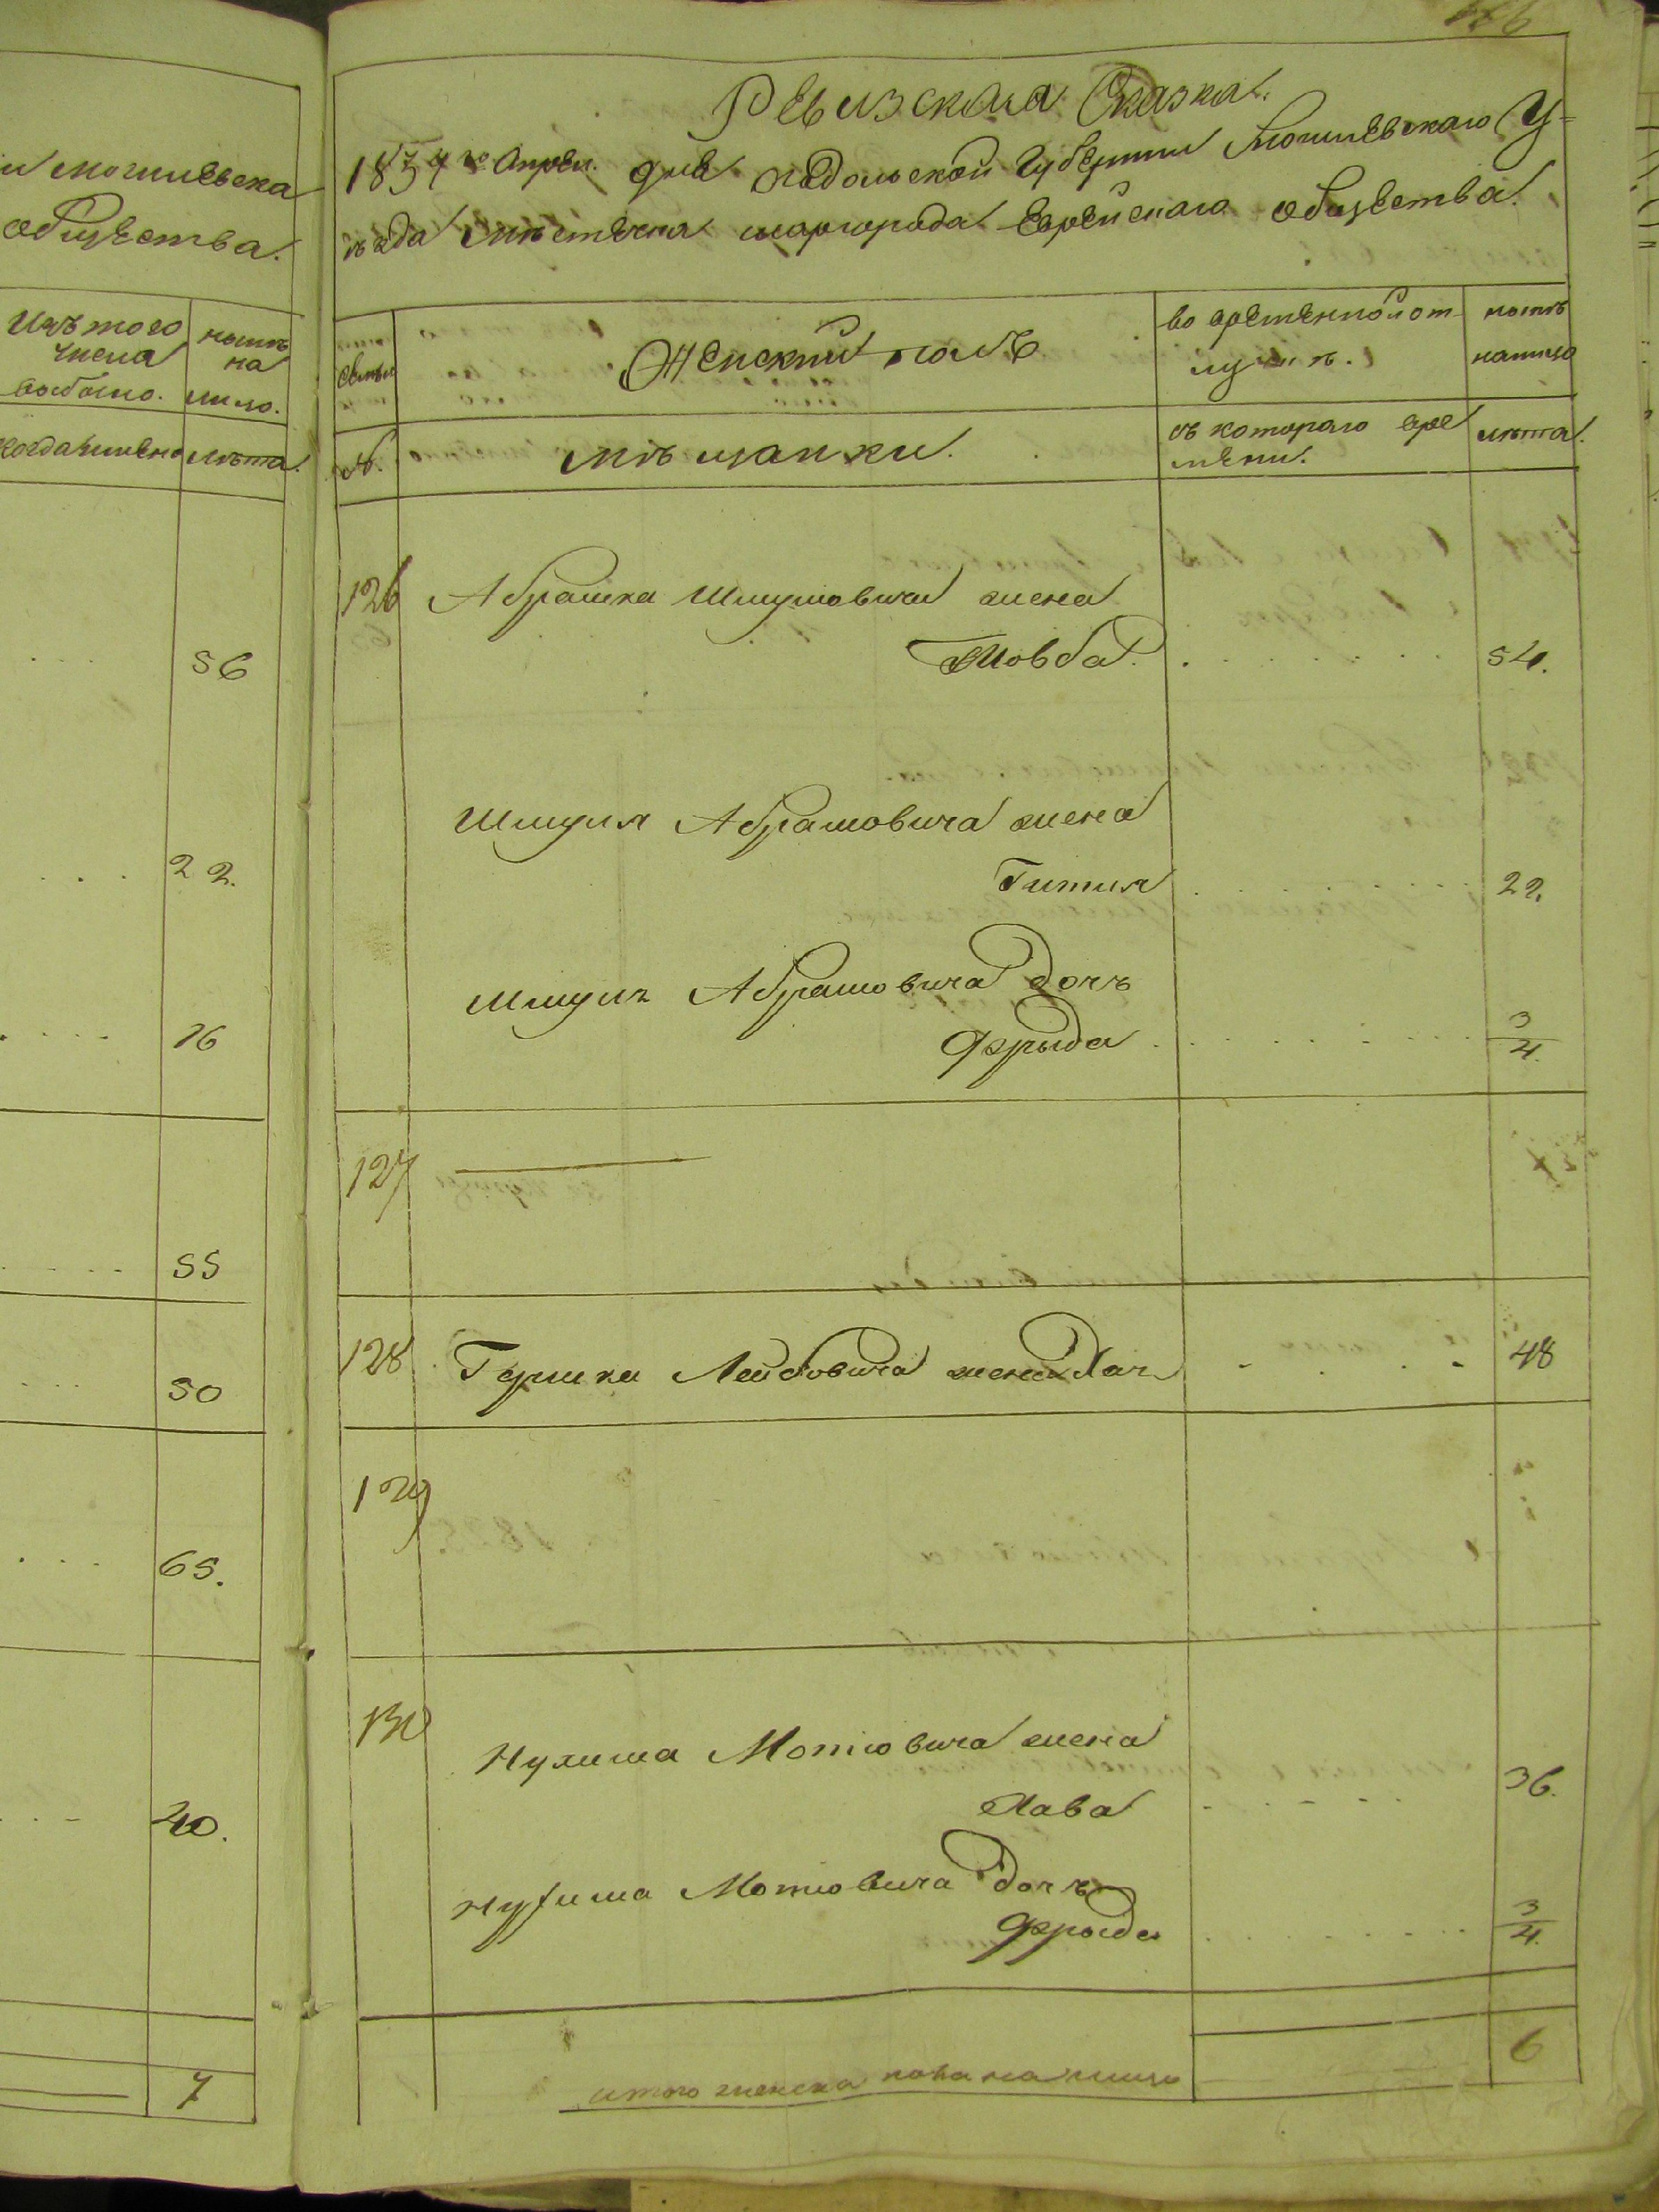 и могилевска
общества.
Изъ того числа
нынѣ на
выбыло.
лицо.
когда именно
лѣта.
56
22.
16
55
50
65.
40.
7
Ревизская Сказка.
1834 го Апрел. дня Подольской Губернии Могилевскаго У=
ѣзда мѣстечка шаргорода Еврейскаго общества.
семьи
Женский полъ
во временной от
лучкѣ.
нынѣ
налицо
№.
мѣщанки.
съ котораго вре
мени.
лѣта.
126 Абрашка Шмулювича жена
Товба. 54.
Шмуля Абрашовича жена
Гитля 22.
Шмуля Абрашовича дочь
Фрыда 3/4.
127
128 Гершка Лейбовича жена Хая 48
129
130 Нухима Мотювича жена
Хава 36.
Нухима Мотювича дочь
Фрыда 3/4.
итого женска пола на лицо 6